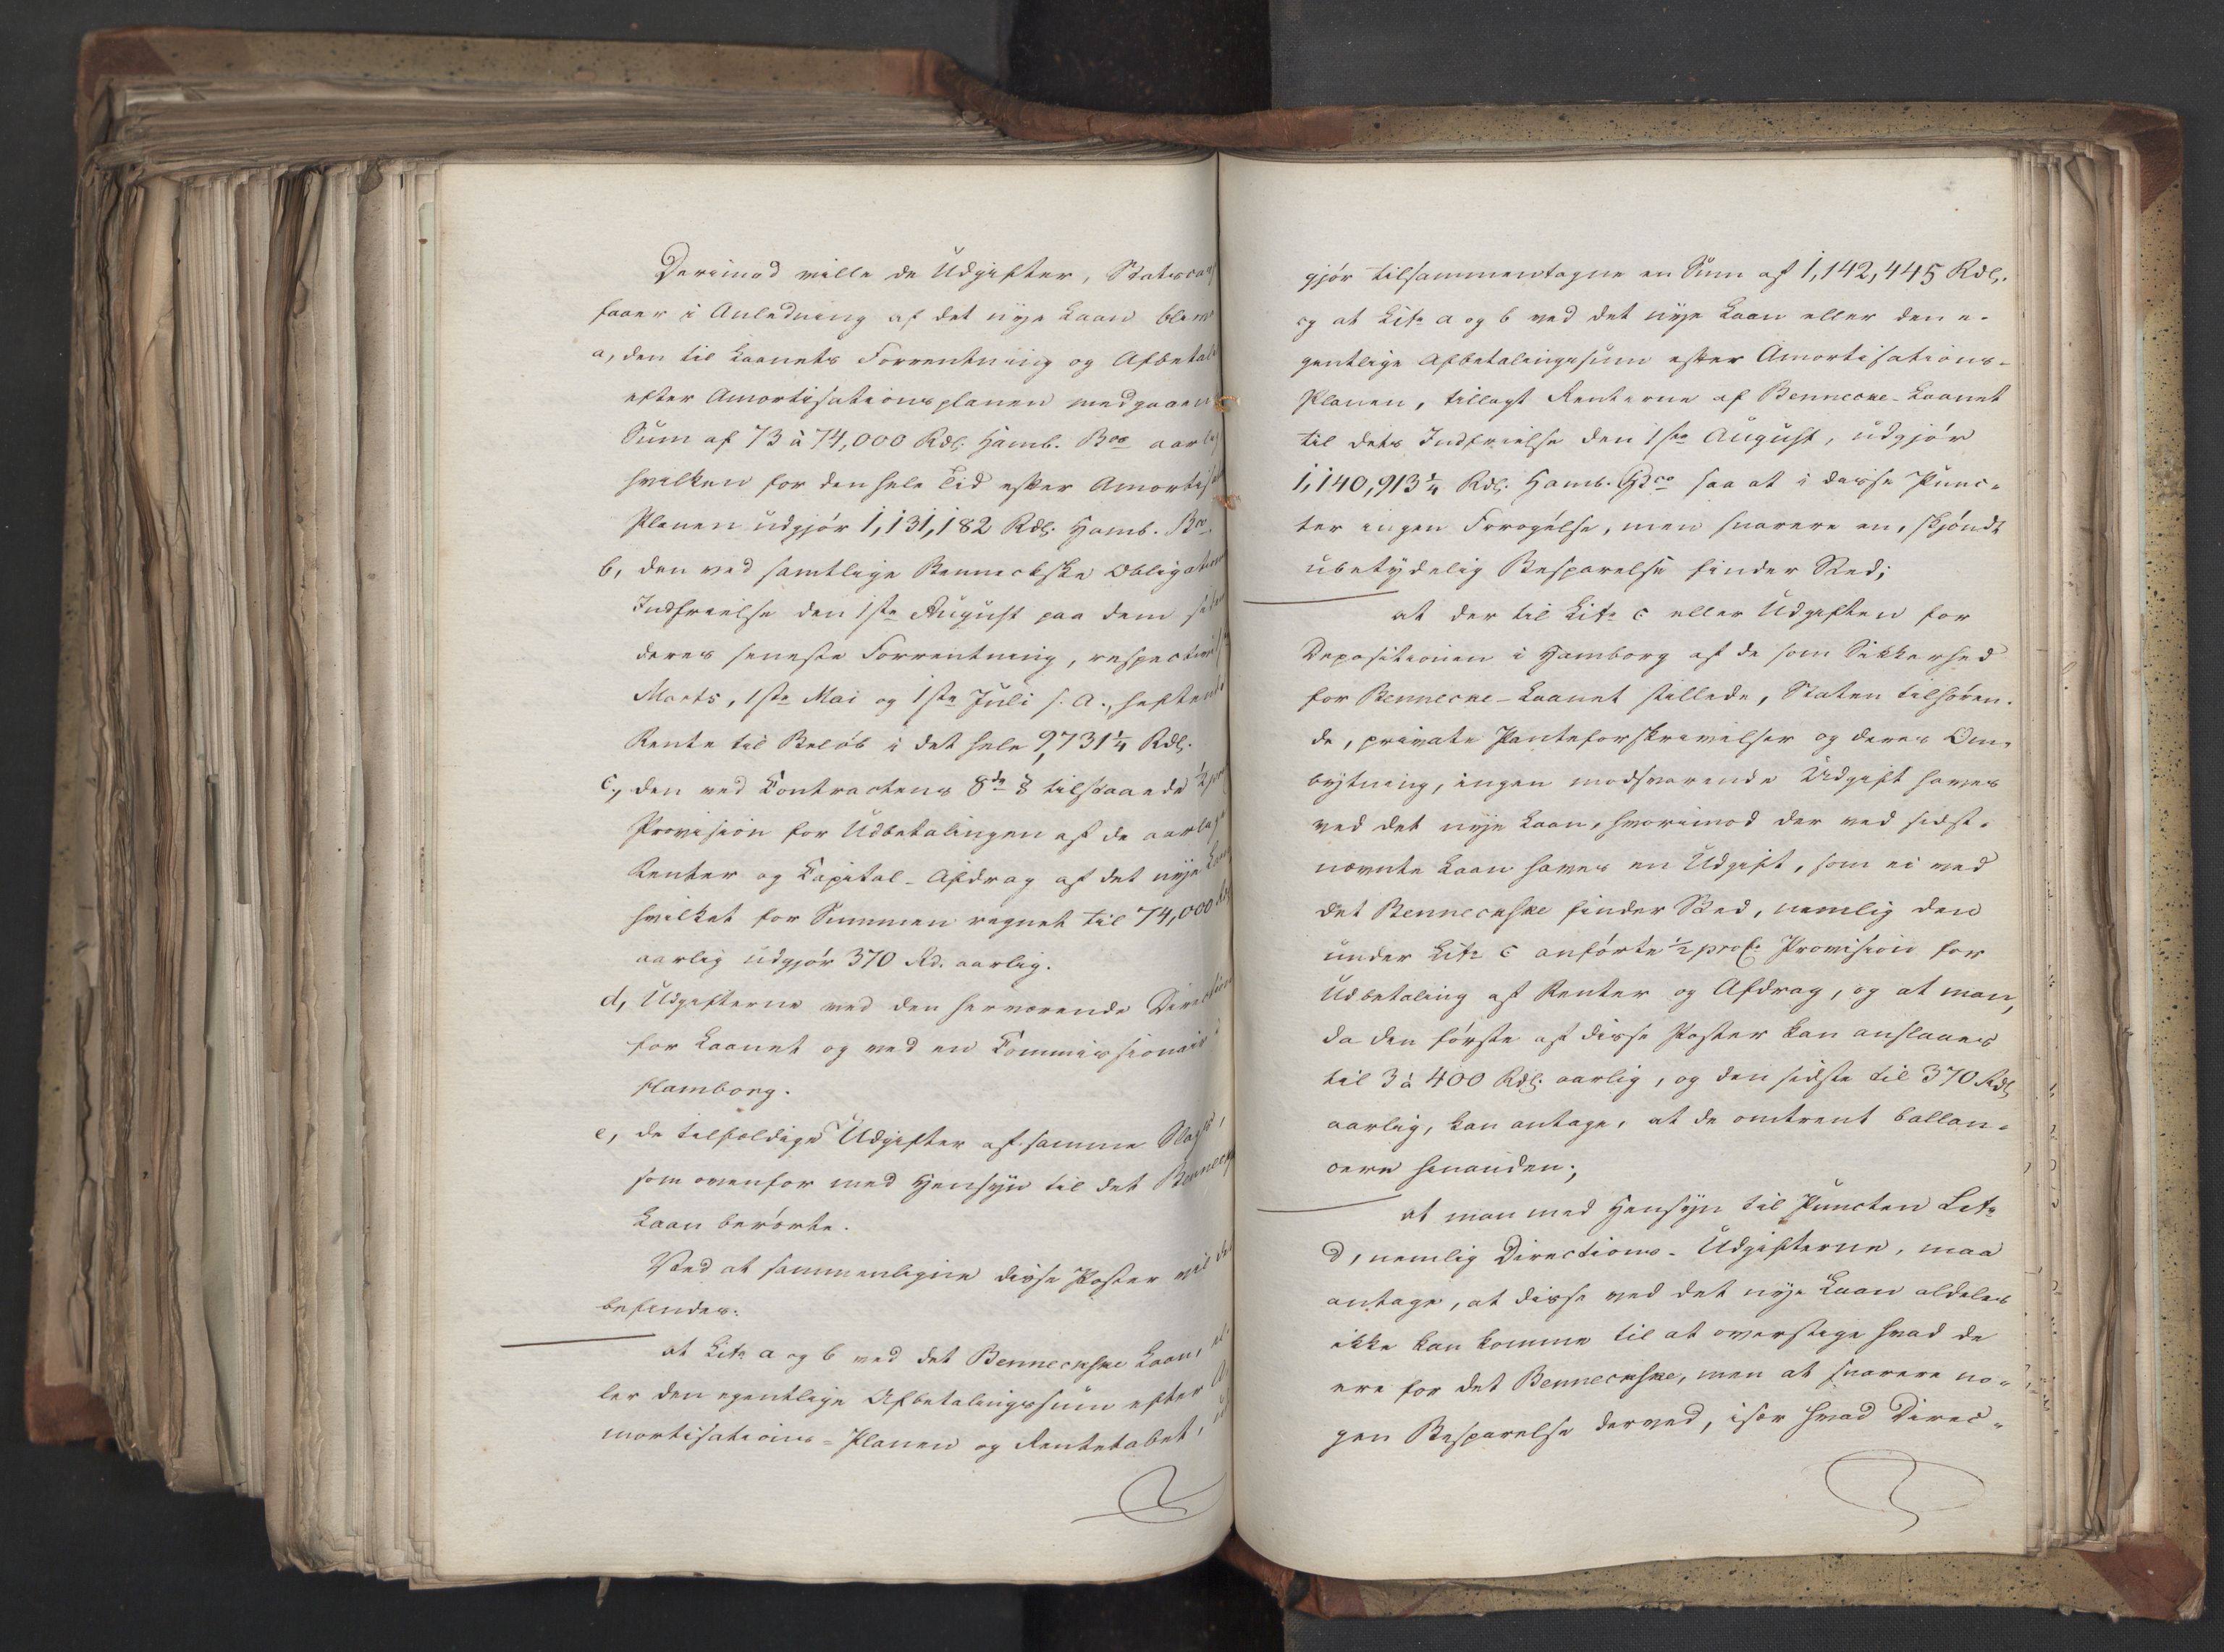 Derimod ville de Udgifter, Statscas
faaer i Anledning af det nye Laan blive
a, den til Laanets Forrentning og Afbetal
efter Amortisationsplanen medgaaen
Sum af 73 à 74,000 Rdl. Hamb. Bco aarlig
hvilken for den hele Tid efter Amortisat
Planen udgjør 1,131,182 Rdl. Hamb. Bco.
b, den ved samtlige Benneckske Obligationer
Indfrielse den 1ste August paa dem siden
deres seneste Forrentning, respective
Marts, 1ste Mai og 1ste Juli s. A., heftende
Rente til Beløb i det hele 9,731¼ Rdl.
c, den ved Contractens 8de § tilstaaede ½ pro
Provision for Udbetalingen af de aarlige
Renter og Capital-Afdrag af det nye Laan
hvilket for Summen regnet til 74,000 Rdl
aarlig udgjør 370 Rd. aarlig.
d, Udgifterne ved den herværende Direction
for Laanet og ved en Commissionair i
Hamborg.
e, de tilfældige Udgifter af samme Slags,
som ovenfor med Hensyn til det Benneck
Laan berørte.
Ved at sammenligne disse Poster vil det
befindes:
at Litr a og b ved det Benneckske Laan, el-
ler den egentlige Afbetalingssum efter A
mortisations-Planen og Rentetabet, ud
gjør tilsammentagne en Sum af 1,142,445 Rdl.
og at Litr a og b ved det nye Laan eller den e-
gentlige Afbetalingssum efter Amortisations-
Planen, tillagt Renterne af Bennecke-Laanet
til dets Indfrielse den 1ste August, udgjør
1,140,913¼ Rdl. Hamb. Bco saa at i disse Punc-
ter ingen Forøgelse, men snarere en, skjøndt
ubetydelig Besparelse finder Sted;
at der til Litr c eller Udgiften for
Depositionen i Hamborg af de som Sikkerhed
for Bennecke-Laanet stillede, Staten tilhøren-
de, private Panteforskrivelser og deres Om-
bytning, ingen modsvarende Udgift haves
ved det nye Laan, hvorimod der ved sidst-
nævnte Laan haves en Udgift, som ei ved
det Benneckske finder Sted, nemlig den
under Litr c anførte ½ proC. Provision for
Udbetaling af Renter og Afdrag, og at man,
da den første af disse Poster kan anslaaes
til 3 à 400 Rdl. aarlig, og den sidste til 370 Rdl
aarlig, kan antage, at de omtrent ballan-
cere hinanden;
at man med Hensyn til Puncten Litr
d, nemlig Directions-Udgifterne, maa
antage, at disse ved det nye Laan aldeles
ikke kan komme til at overstige hvad de
ere for det Benneckske, men at snarere no-
gen Besparelse derved, især hvad Direc-